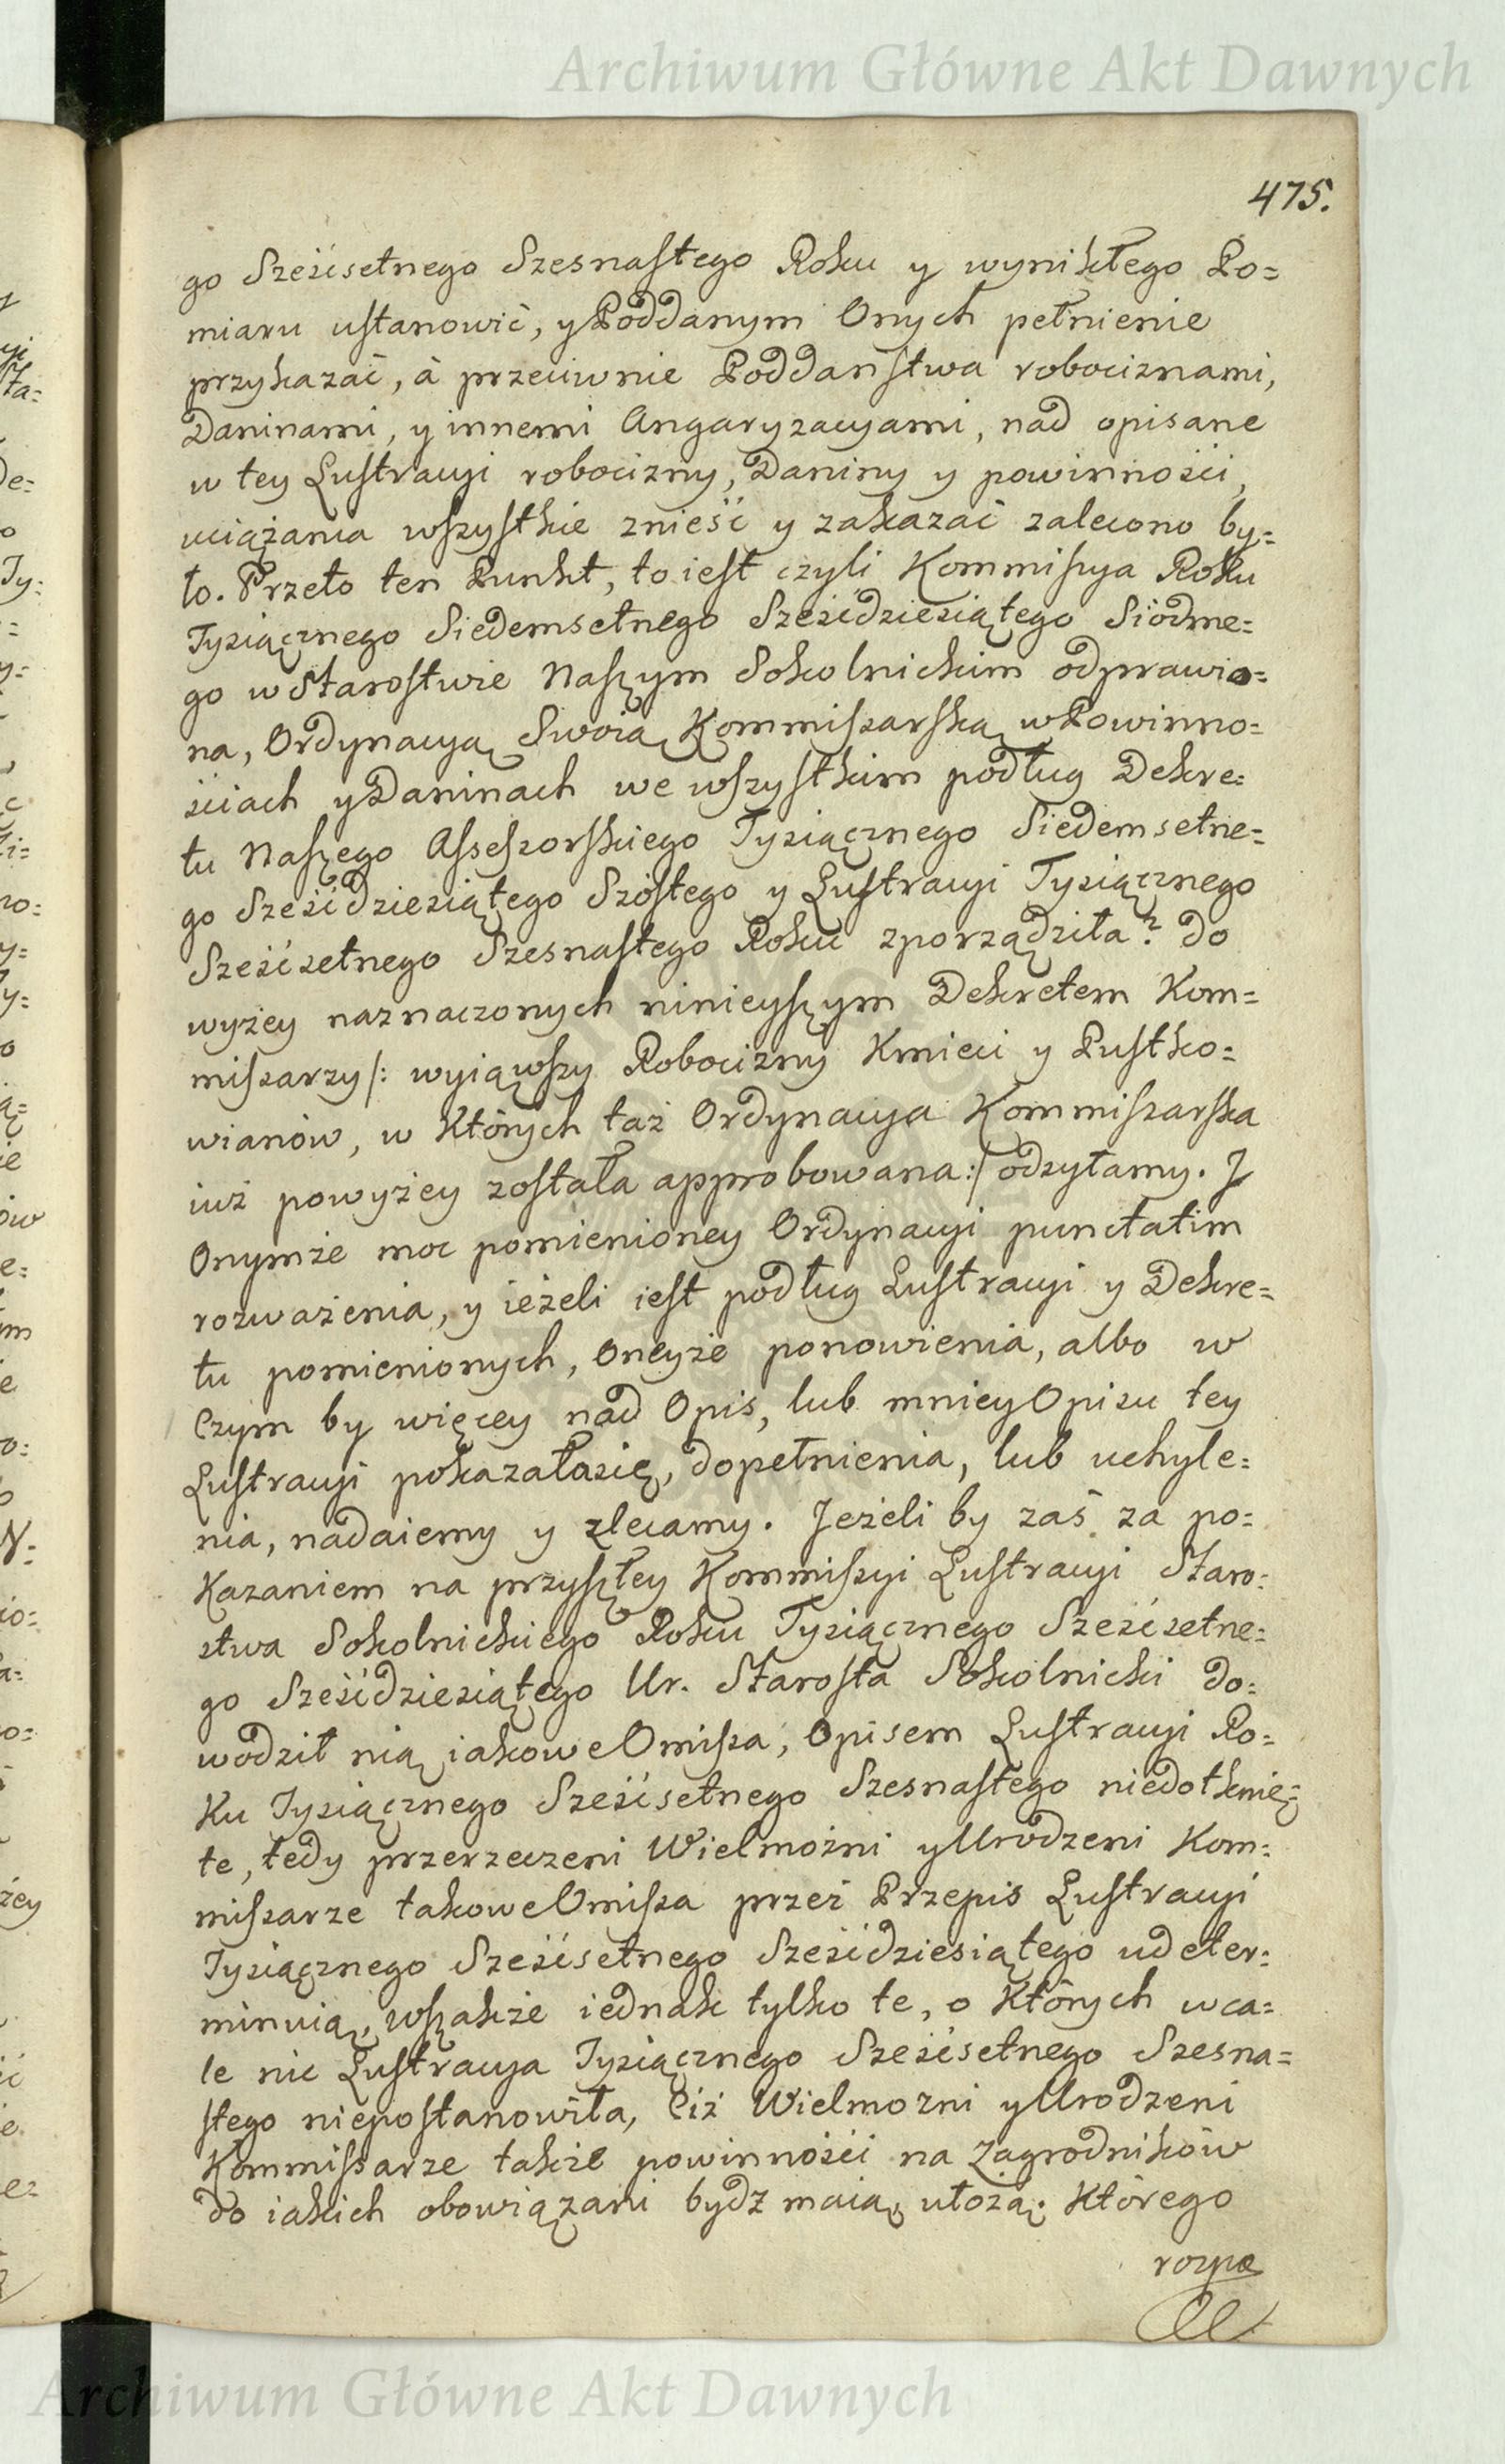 Archiwum Główne Akt Dawnych
475.
go Sześćsetnego Szesnastego Roku y wynikłego Po=
miaru ustanowić, y Poddanym Onych pełnienie
przykazać, à przeciwnie Poddaństwa robociznami,
Daninami, y innemi Angaryzacyami, nad opisane
w tey Lustracyi robocizny, Daniny y powinności,
uciążania wszystkie znieść y zakazać zalecono by=
ło. Przeto ten Punkt, to iest czyli Kommissya Roku
Tysiącznego Siedemsetnego Sześćdziesiątego Siódme=
go w Starostwie Naszym Sokolnickim odprawio=
na, Ordynacyą Swoią Kommissarską w Powinno=
ściach y Daninach we wszystkim podług Dekre=
tu Naszego Assessorskiego Tysiącznego Siedemsetne=
go Sześćdziesiątego Szóstego y Lustracyi Tysiącznego
Sześćsetnego Szesnastego Roku zporządziła? do
wyżey naznaczonych ninieyszym Dekretem Kom=
missarzy /: wyiąwszy Robocizny Kmieci y Pustko=
wianów, w Których taż Ordynacya Kommissarska
iuż powyżey została approbowana :/ odsyłamy. J
Onymże moc pomienioney Ordynacyi punctatim
rozważenia, y ieżeli iest podług Lustracyi y Dekre=
tu pomienionych, Oneyże ponowienia, albo w
Czym by więcey nad Opis, lub mniey Opisu tey
Lustracyi pokazałasię, dopełnienia, lub uchyle=
nia, nadaiemy y zlecamy. Jeżeli by zaś za po=
Kazaniem na przyszłey Kommissyi Lustracyi Staro=
stwa Sokolnickiego Roku Tysiącznego Sześćsetne=
go Sześćdziesiątego Ur. Starosta Sokolnicki do=
wodził nią iakowe Omissa, Opisem Lustracyi Ro=
Ku Tysiącznego Sześćsetnego Szesnastego niedotknię=
te, tedy przerzeczeni Wielmożni y Urodzeni Kom=
missarze takowe Omissa przez Przepis Lustracyi
Tysiącznego Sześćsetnego Sześćdziesiątego udeter=
minuią, wszakże iednak tylko te, o Których wca=
le nic Lustracya Tysiącznego Sześćsetnego Szesna=
stego niepostanowiła, Ciż Wielmożni y Urodzeni
Kommissarze także powinności na Zagrodników
do iakich obowiązani bydz maią, ułożą. Którego
rozpo
Archiwum Główne Akt Dawnych